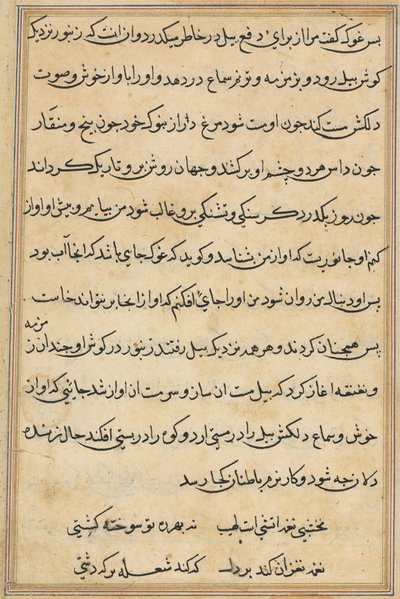 پس غوک گفت مرا از برای دفع پیل در خاطر میگذرد و ان انست که زنبور نزدیک
گوش پیل رود و بزمزمه و ترنم سماع در دهد و او را باواز خوش و صوت
دلکش مست کند چون او مست شود مرغ دراز نوک خود چون و منقار
چون داس هر دو چشم او برکشد و جهان روشن برو تاریک گرداند
چون روز بگذرد گرسنگی و تشنگی برو غالب شود من بیایم و پیش او اواز
کنم او جانوریست که اواز من بشناسد و گوید که غوک جای باشد که انجا اب بود
پس او دنبال من روان شود من او را جائی افکنم که او از انجا بر نتواند خاست
پس همچنان کردند و هر همه نزدیک پیل رفتند زنبور در گوش او چندان زمزمه
و نغنغه اغاز کرد که پیل مست ان ساز و سرمست ان اواز شد جائیی که اواز
خوش و سماع دلکش پیل را در مستی ارد و کوه را در پستی افکند حال زنده
دلان چه شود و کار نرم باطنان کجا رسد
نخشبی نغمه اتشی است لهیب نه بهره تو سوخته کشتی
نغمه نغز ان کند بر دل که کند شعله بر که دشتی